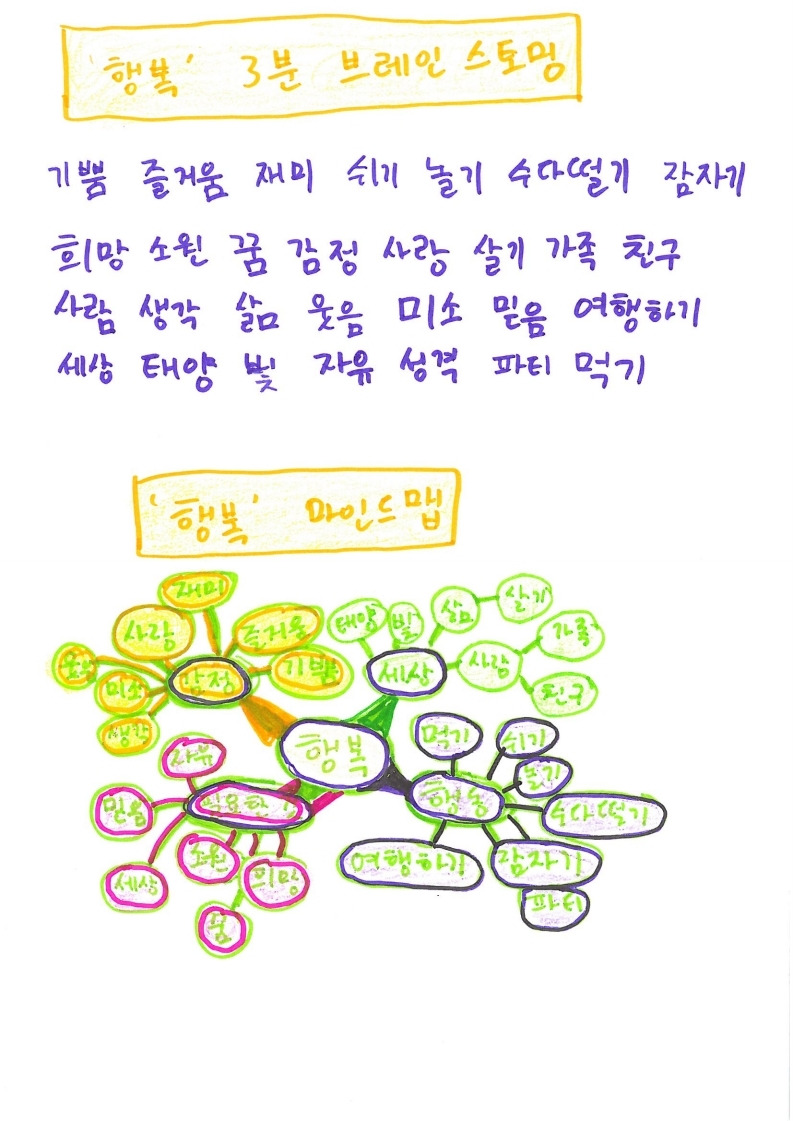 '행복' 3분 브레인스토밍
기쁨 즐거움 재미 쉬기 놀기 수다떨기 잠자기
희망 소원 꿈 감정 사랑 살기 가족 친구
사람 생각 삶 웃음 미소 믿음 여행하기
세상 태양 빛 자유 성격 파티 먹기
'행복' 마인드맵
재미
사랑
즐거움
기쁨
미소
생각
감정
태양
빛
삶
살기
사람
가족
친구
세상
행복
자유
믿음
세상
소원
희망
꿈
먹기
쉬기
놀기
수다떨기
행동
여행하기
잠자기
파티